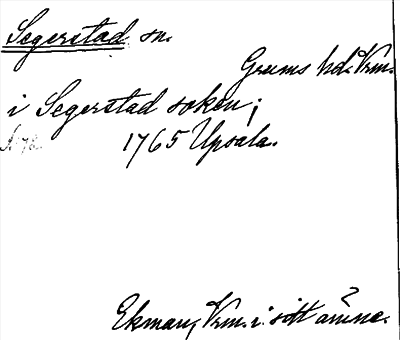 Segerstad sn.
Grums hd. Vrm.
i Segerstad soken;
1765 Upsala.
Ekman, Vrm. i sitt ämne.